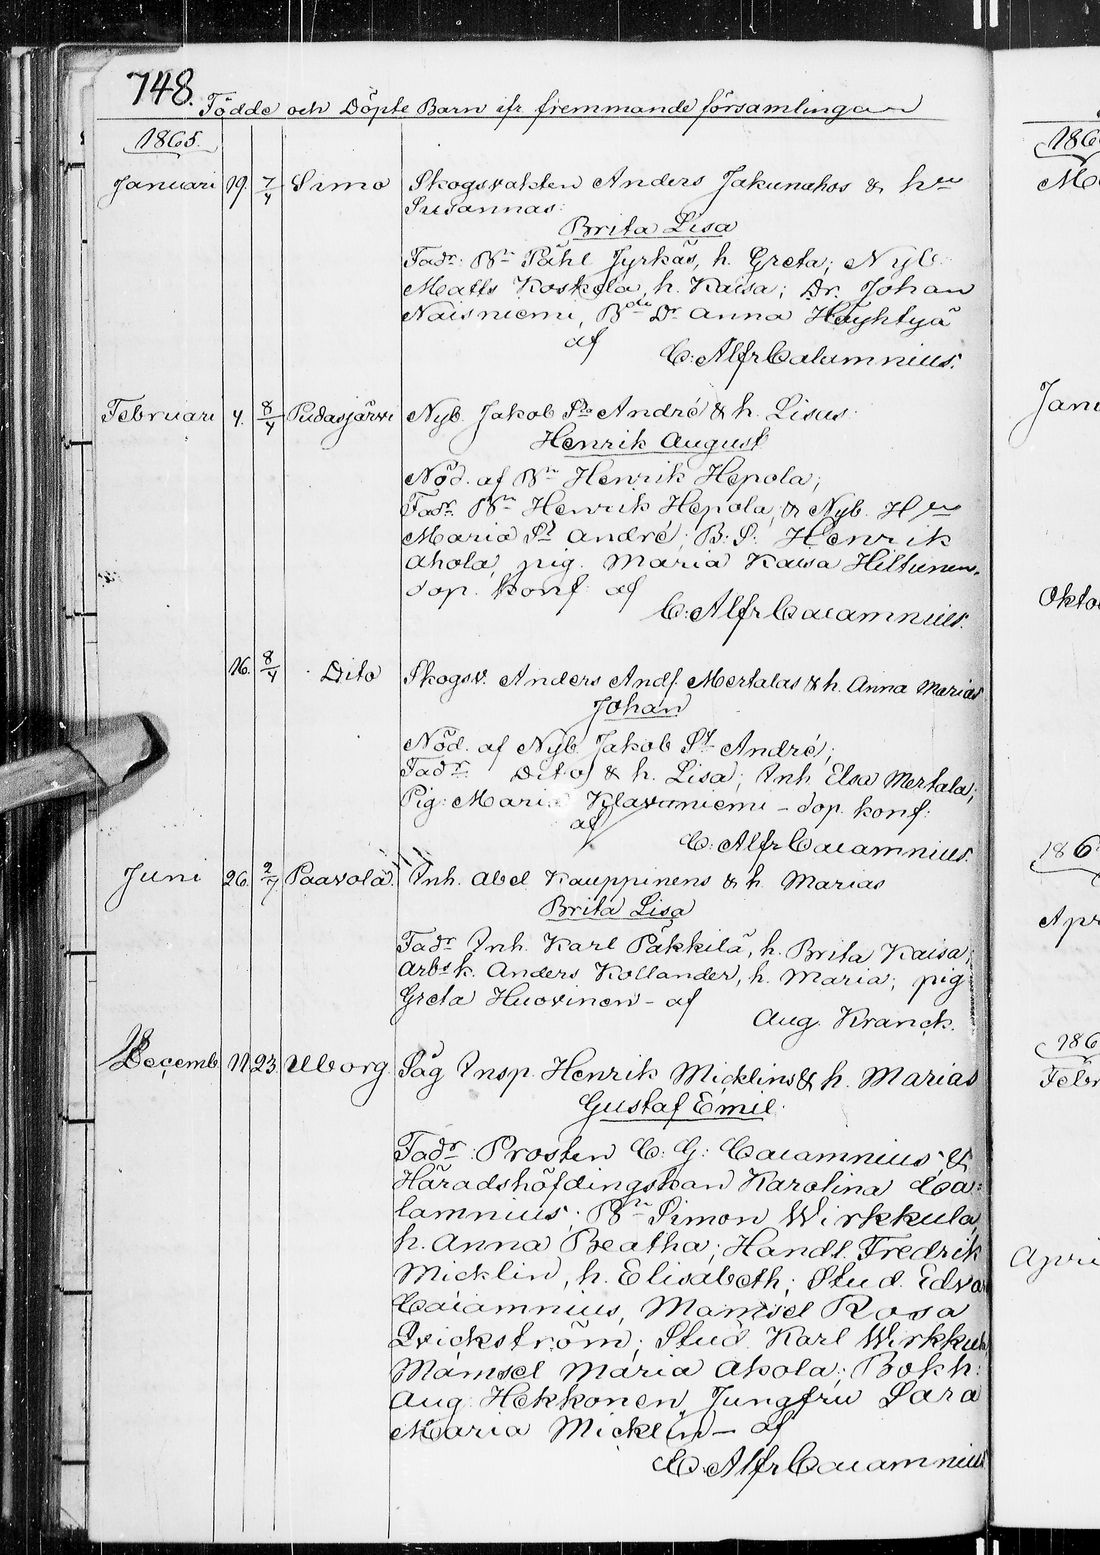 748.
Födde och Döpte Barn ifr. fremmande församlingan
1865.
Januari 19. 7/4 Simo Skogsvakten Anders Jakunahos & hru
Susannas:
Brita Lisa
Fadr. Bn Påhl Jyrkäs, h. Greta; Nyb.
Matts Koskela, h. Kaisa; Dr. Johan
Näisniemi, Bde Dr Anna Höyhtyä
af
C: Alfr Calamnius.
Februari 4. 8/4 Pudasjärvi Nyb. Jakob St André & h. Lisus:
Henrik August
Nöd. af Bn Henrik Hepola;
Fadr. Bn Henrik Hepola, & Nyb. Hru
Maria St André; B: S: Henrik
Ahola, pig. Maria Kaisa Hiltunen.
dop. konf. af
C: Alfr Calamnius.
16. 8/4 Dito Skogsv. Anders Andf. Mertalas & h. Anna Marias
Johan
Nöd. af Nyb. Jakob St André;
Fadr. Dito & h. Lisa; Inh. Elsa Mertala;
Pig: Maria Klavuniemi - dop. konf:
af
C: Alfr Calamnius.
Juni 26. 2/7 Paavola Inh. Abel Kauppinens & h. Marias
Brita Lisa
Fadr Inh. Karl Päkkilä, h. Brita Kaisa;
Arbsk. Anders Kollander, h. Maria; pig.
Greta Huovinen - af
Aug. Kranck.
Decemb 11 23 Uleborg Såg Insp. Henrik Micklins & h. Marias
Gustaf Emil.
Fadr: Prosten C: G: Calamnius, &
Häradshöfdingskan Karolina Ca=
lamnius; Bn Simon Wirkkula,
h. Anna Beatha; Handl. Fredrik
Micklin, h. Elisabeth; Stud. Edva
Calamnius, Mamsel Rosa
Qvickström; Stud. Karl Wirkkul
Mamsel Maria Ahola; Bokh:
Aug. Hekkonen, Jungfru Sara
Maria Micklin - af
C: Alfr Calamnius
186
Ma
Janu
Okto
186
Apr
186
Febr
Apri